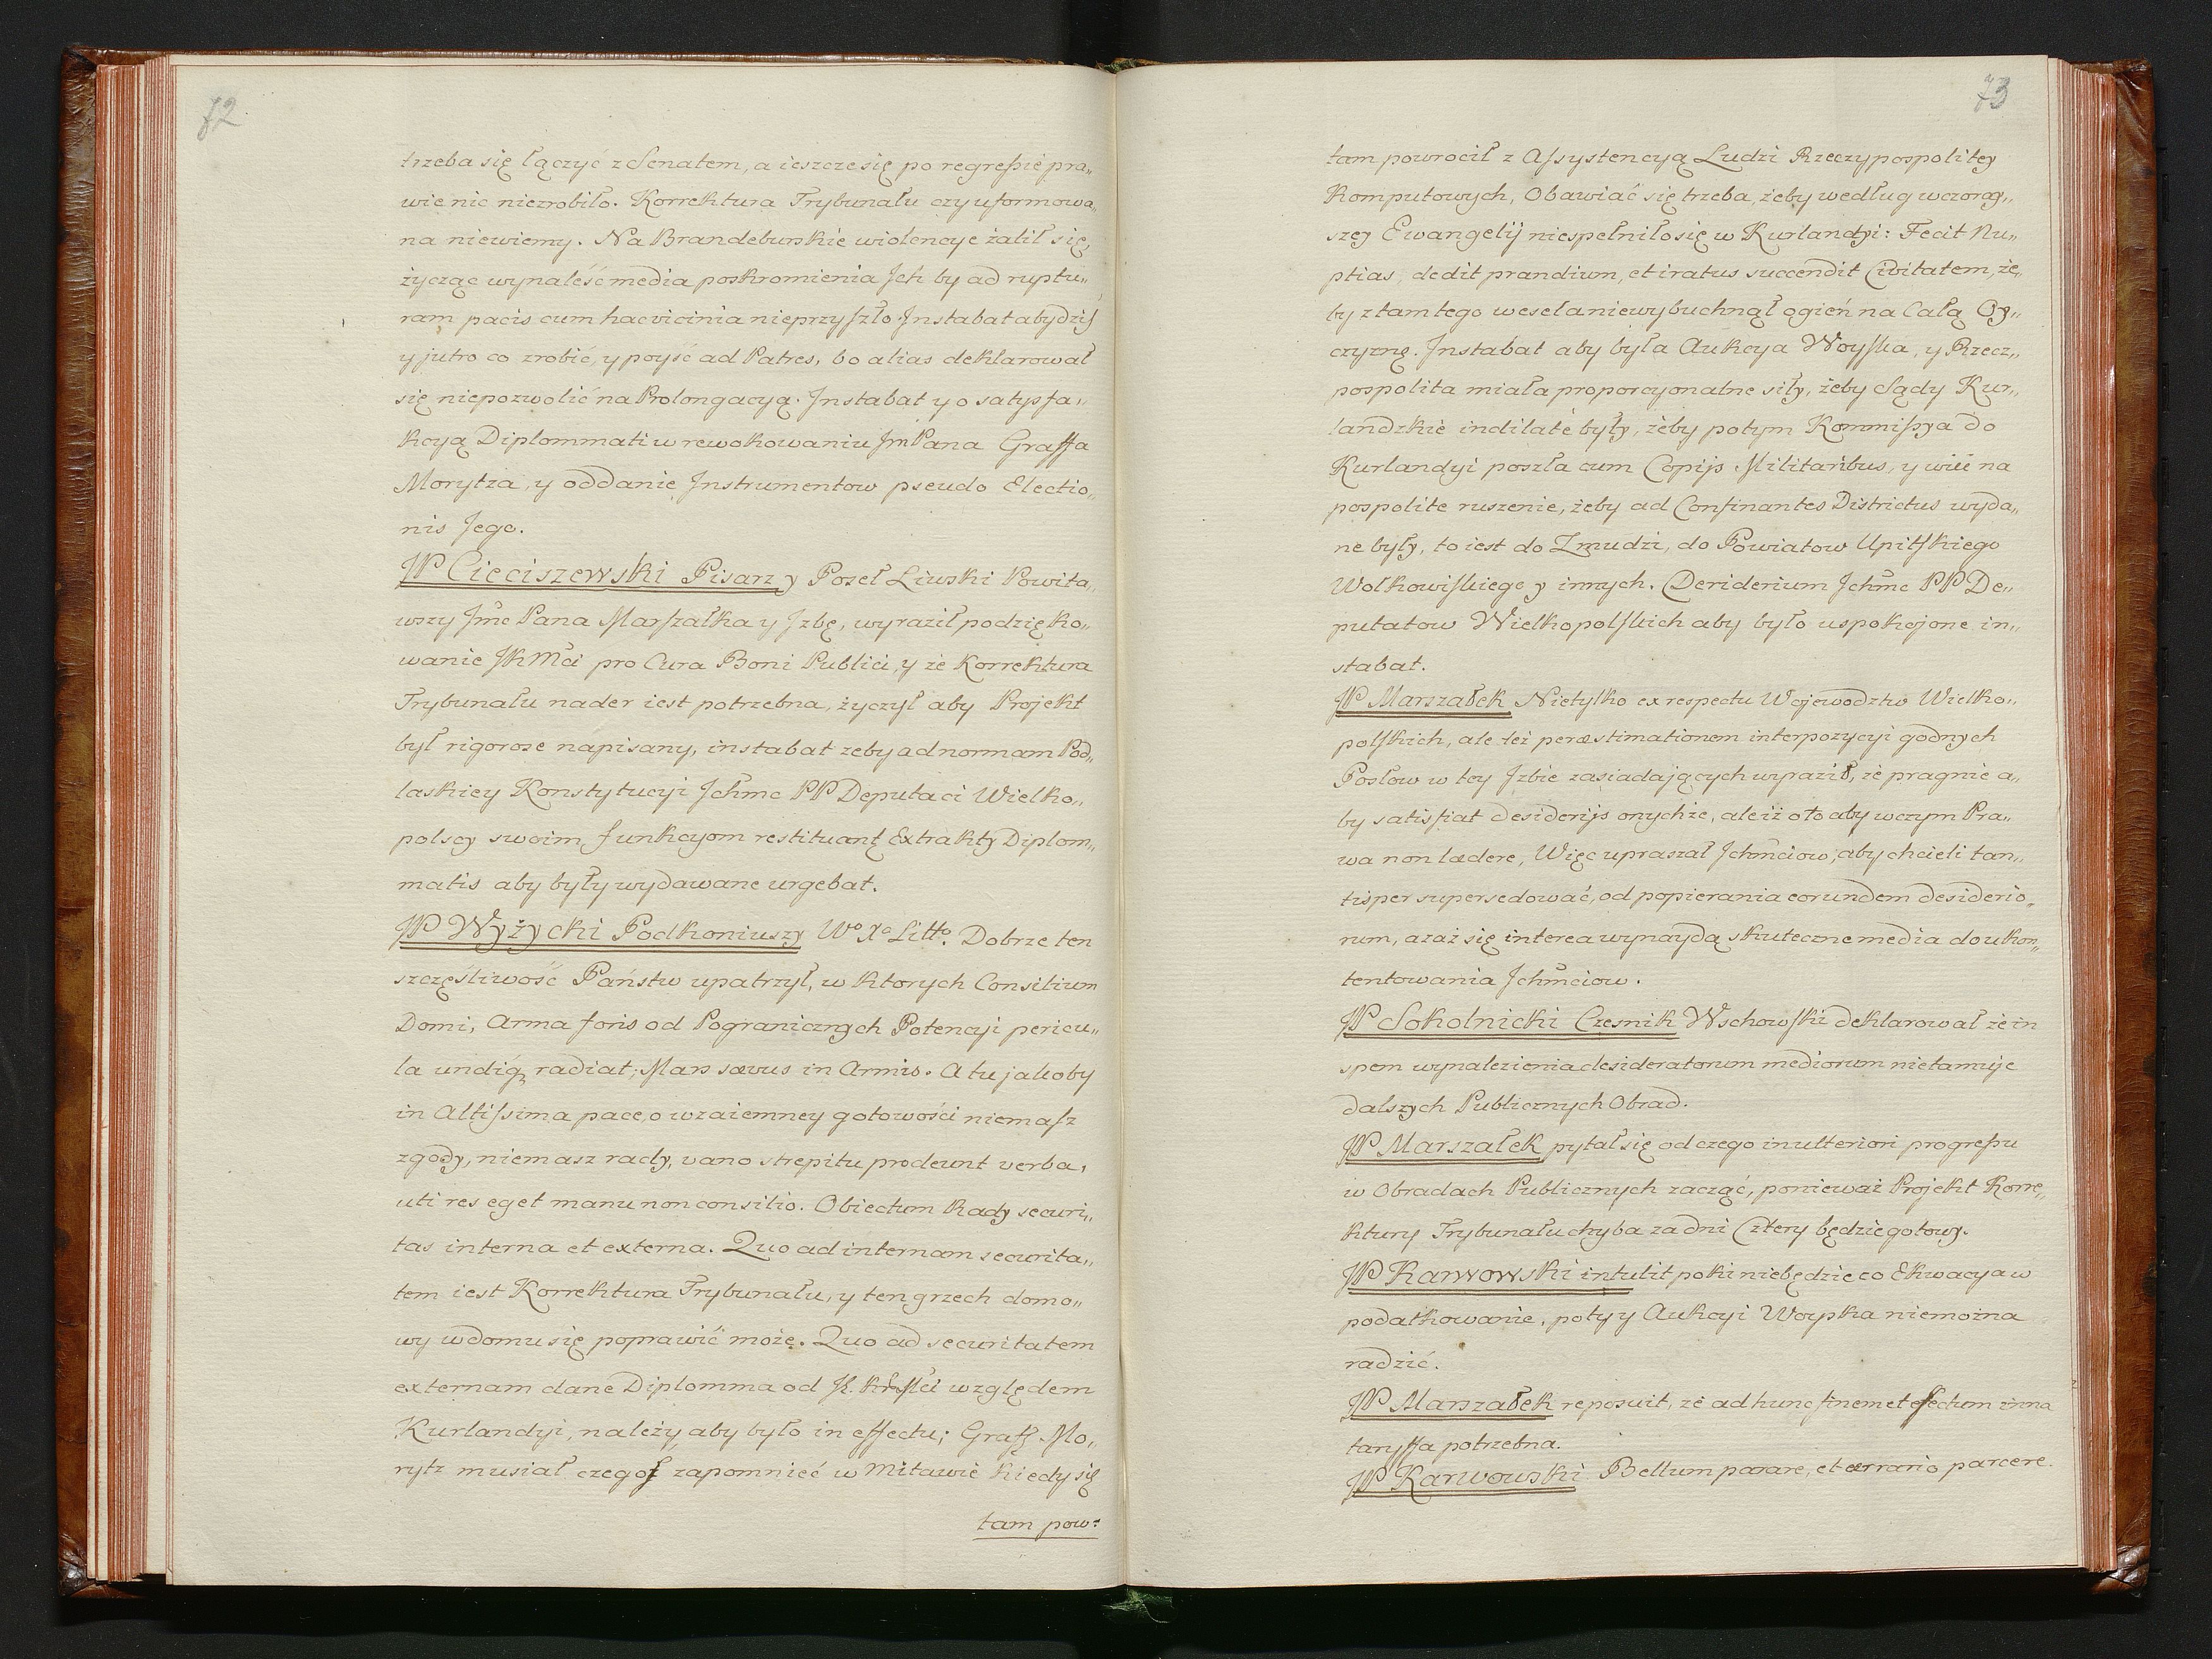 72
trzeba się łączyć z Senatem, a ieszcze się po regressie pra„
wie nic niezrobiło. Korrektura Trybunału czy uformowa„
na niewiemy. Na Brandeburskie wiolencye żalił się,
życząc wynaleść media poskromienia Ich by ad ruptu„
ram pacis cum hac vicinia nieprzyszło. Instabat aby dziś
y jutro co zrobić, y poyść ad Patres, bo alias deklarował
się niepozwolić na Prolongacyą. Instabat y o satysfa„
kcyą Diplommati w rewokowaniu Jm̃ Pana Graffa
Morytza, y oddanie Instrumentow pseudo Electio„
nis Jego.
JP Cieciszewski Pisarz y Poseł Liwski Powita„
wszy Jm̃c Pana Marszałka y Izbę, wyraził podzięko„
wanie JKMci pro Cura Boni Publici, y że Korrektura
Trybunału nader iest potrzebna, życzył aby Projekt
był rigorose napisany, instabat zeby ad normam Pod„
laskiey Konstytucyi Ichmc PP Deputaci Wielko„
polscy swoim funkcyom restituantę Extrakty Diplom„
matis aby były wydawane urgebat.
JP Wyżycki Podkoniuszy Wo Xo Litto. Dobrze ten
szczęśliwość Państw upatrzył, w ktorych Consilium
Domi, Arma foris od Pogranicznych Potencyi pericu„
la undiq; radiat; Mars sævus in Armis. A tu jakoby
in Altissima pace, o wzaiemney gotowości niemasz
zgody, niemasz rady, vano strepitu prodeunt verba,
uti res eget manu non consilio. Obiectum Rady securi„
tas interna et externa. Quo ad internam securita„
tem iest Korrektura Trybunału, y ten grzech domo„
wy w domu się poprawić może. Quo ad securitatem
externam dane Diplomma od względem
Kurlandyi, należy aby było in effectu; Graff Mo„
rytz musiał czegoś zapomnieć w Mitawie kiedy się
tam pow:
73
tam powrocił z Assystencyą Ludzi Rzeczypospolitey
Komputowych, Obawiać się trzeba, żeby według wczoray„
szey Ewangelij niespełniło się w Kurlandyi: Fecit Nu„
ptias, dedit prandium, et iratus succendit Civitatem, że„
by z tamtego wesela niewybuchnął ogień na Całą Oy„
czyznę. Instabat aby była Aukcya Woyska, y Rzecz„
pospolita miała proporcyonalne siły, żeby Sądy Kur„
landzkie indilatè były, żeby potym Kommissya do
Kurlandyi poszła cum Copijs Militaribus, y wici na
pospolite ruszenie, żeby ad Confinantes Districtus wyda„
ne były, to iest do Zmudzi, do Powiatow Upitskiego
Wołkowiskiego y innych. Deriderium Ichmc PP De„
putatow Wielkopolskich aby było uspokojone in„
stabat.
JP Marszałek Nietylko ex respectu Wojewodztw Wielko„
polskich, ale też per æstimationem interpozycyi godnych
Posłow w tey Izbie zasiadających wyraził, że pragnie a„
by satisfiat desiderijs onychże, ale iż o to aby w czym Pra„
wa non lædere, Więc upraszał Ichmciow, aby chcieli tan„
tisper supersedować, od popierania eorundem desiderio„
rum, azaż się interea wynaydą skuteczne media do ukon„
tentowania Ichmciow.
JP Sokolnicki Czesnik Wschowski deklarował że in
spem wynalezienia desideratorum mediorum nietamuje
dalszych Publicznych Obrad.
JP Marszałek pytał się od czego in ulteriori progressu
w Obradach Publicznych zacząć, ponieważ Projekt Korre„
ktury Trybunału chyba za dni Cztery będzie gotowy.
JP Karwowski intulit poki niebędzie co Ekwacya w
podatkowanie, poty y Aukcyi Woyska niemożna
radzić.
JP Marszałek reposuit, że ad hunc finem et effectum inna
taryffa potrzebna.
JP Karwowski Bellum parare, et ærrario parcere.